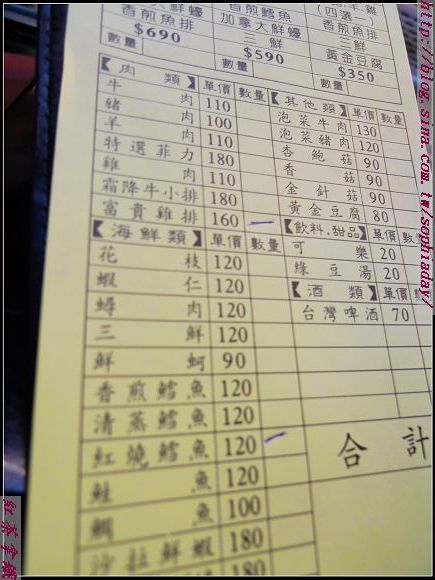 鮮蠔 香煎鱈魚 (四選
香煎魚排 加拿大鮮蠔 三鮮
$690 三鮮 黃金豆腐
數量 $590 $350
數量 數量
【肉類】 單價 數量
牛肉 110
豬肉 100
羊肉 110
特選菲力 180
雞肉 110
霜降牛小排 180
富貴雞排 160
【海鮮類】 單價 數量
花枝 120
蝦仁 120
蟳肉 120
三鮮 120
鮮蚵 90
香煎鱈魚 120
清蒸鱈魚 120
紅燒鱈魚 120
鮭魚 120
鯛魚 100
沙拉鮮蝦 180
180
【其他類】 單價 數量
泡菜牛肉 130
泡菜豬肉 120
杏鮑菇 90
香菇 90
金針菇 90
黃金豆腐 80
【飲料.甜品】 單價 數量
可樂 20
綠豆湯 20
【酒類】 單價 數量
台灣啤酒 70
合計
http://blog.sina.com.tw/sophiaday/